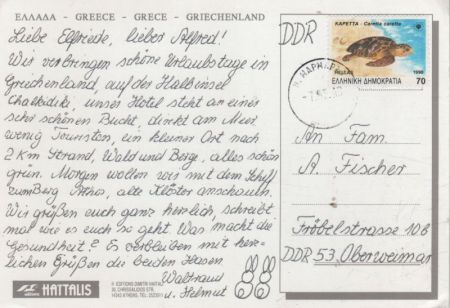 ΕΛΛΑΔΑ - GREECE - GRECE - GRIECHENLAND
Liebe Elfriede, lieber Alfred!
Wir verbringen schöne Urlaubstage in
Griechenland, auf der Halbinsel
Chalkidiki, unser Hotel steht an einer
sehr schönen Bucht, direkt am Meer
wenig Touristen, ein kleiner Ort nach
2 Km Strand, Wald und Berge, alles schön
grün. Morgen wollen wir mit dem Schiff
zum Berg Athos, alte Klöster anschauen.
Wir grüßen euch ganz herzlich, schreibt
mal wie es euch so geht? Was macht die
Gesundheit? Es verbleiben mit herz-
lichen Grüßen die beiden Hasen
Waltraud
u. Helmut
HAITALIS
DDR
ΚΑΡΕΤΤΑ - Caretta caretta
HELLAS 1990
ΕΛΛΗΝΙΚΗ ΔΗΜΟΚΡΑΤΙΑ 70
An Fam.
A. Fischer
Fröbelstrasse 10B
DDR 53 Oberweimar